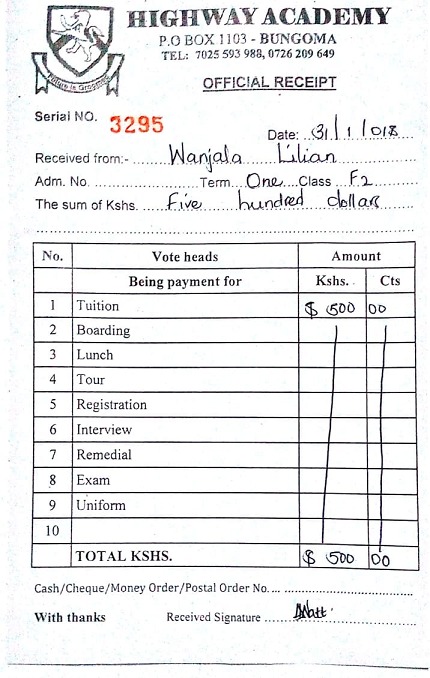 HIGHWAY ACADEMY
P.O BOX 1103 - BUNGOMA
TEL: 7025 593 988, 0726 209 649
OFFICIAL RECEIPT
Serial NO. 3295
Date: 31/1/018
Received from:- Wanjala Lilian
Adm. No. Term One Class F2
The sum of Kshs. Five hundred dollars
No. Vote heads Amount
Being payment for Kshs. Cts
1 Tuition $ 500 00
2 Boarding
3 Lunch
4 Tour
5 Registration
6 Interview
7 Remedial
8 Exam
9 Uniform
10
TOTAL KSHS. $ 500 00
Cash/Cheque/Money Order/Postal Order No.
With thanks Received Signature